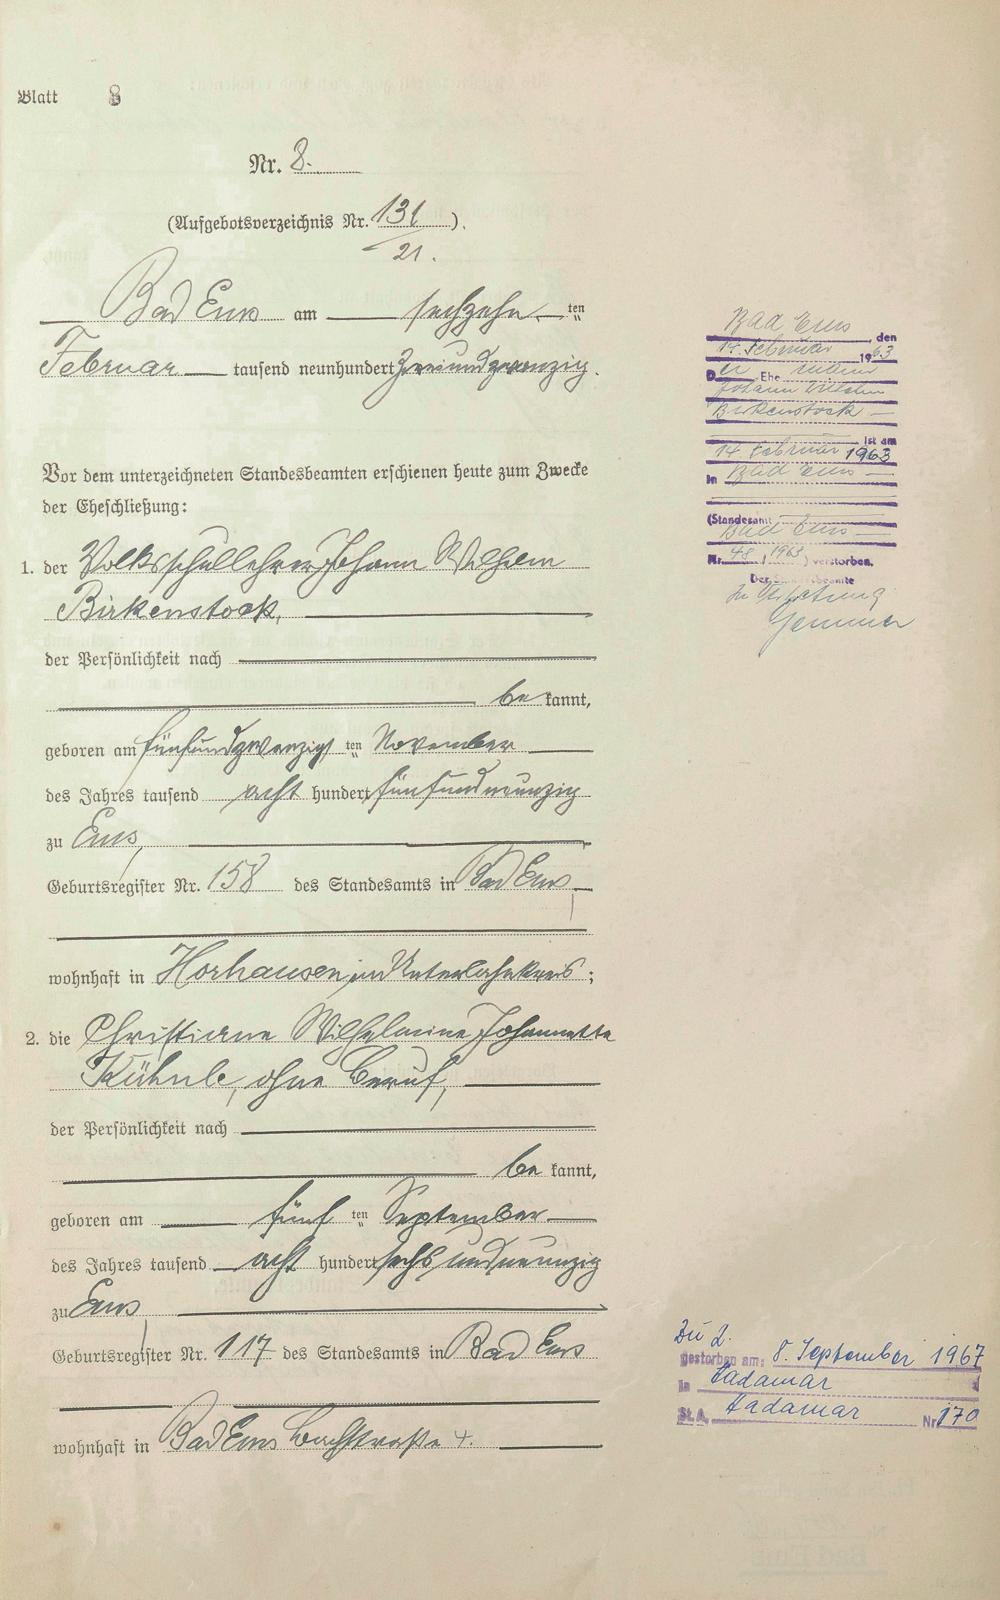 Blatt 8
Nr. 8.
(Aufgebotsverzeichnis Nr. 131/21.).
Bad Ems am sechzehn ten
Februar tausend neunhundert zweiundzwanzig.
Vor dem unterzeichneten Standesbeamten erschienen heute zum Zwecke
der Eheschließung:
1. der Volksschullehrer Johann Wilhelm
Birkenstock,
der Persönlichkeit nach
be kannt,
geboren am fünfundzwanzig ten November
des Jahres tausend acht hundert fünfundneunzig
zu Ems,
Geburtsregister Nr. 158 des Standesamts in Bad Ems
wohnhaft in Horhausen im Unterlahnkreis;
2. die Christiane Wilhelmine Johannette
Kühnle, ohne Beruf,
der Persönlichkeit nach
be kannt,
geboren am fünf ten September
des Jahres tausend acht hundert sechsundneunzig
zu Ems,
Geburtsregister Nr. 117 des Standesamts in Bad Ems
wohnhaft in Bad Ems Bachstraße 4.
Bad Ems, den
14. Februar 1963
Der Ehe mann
Johann Wilhelm
Birkenstock
ist am
14 Februar 1963
in Bad Ems
(Standesamt
Bad Ems
Nr. 48, 1963) verstorben.
Der Standesbeamte
In Vertretung
Zu 2.
gestorben am: 8. September 1967
in Hadamar
St.A. Hadamar Nr 170